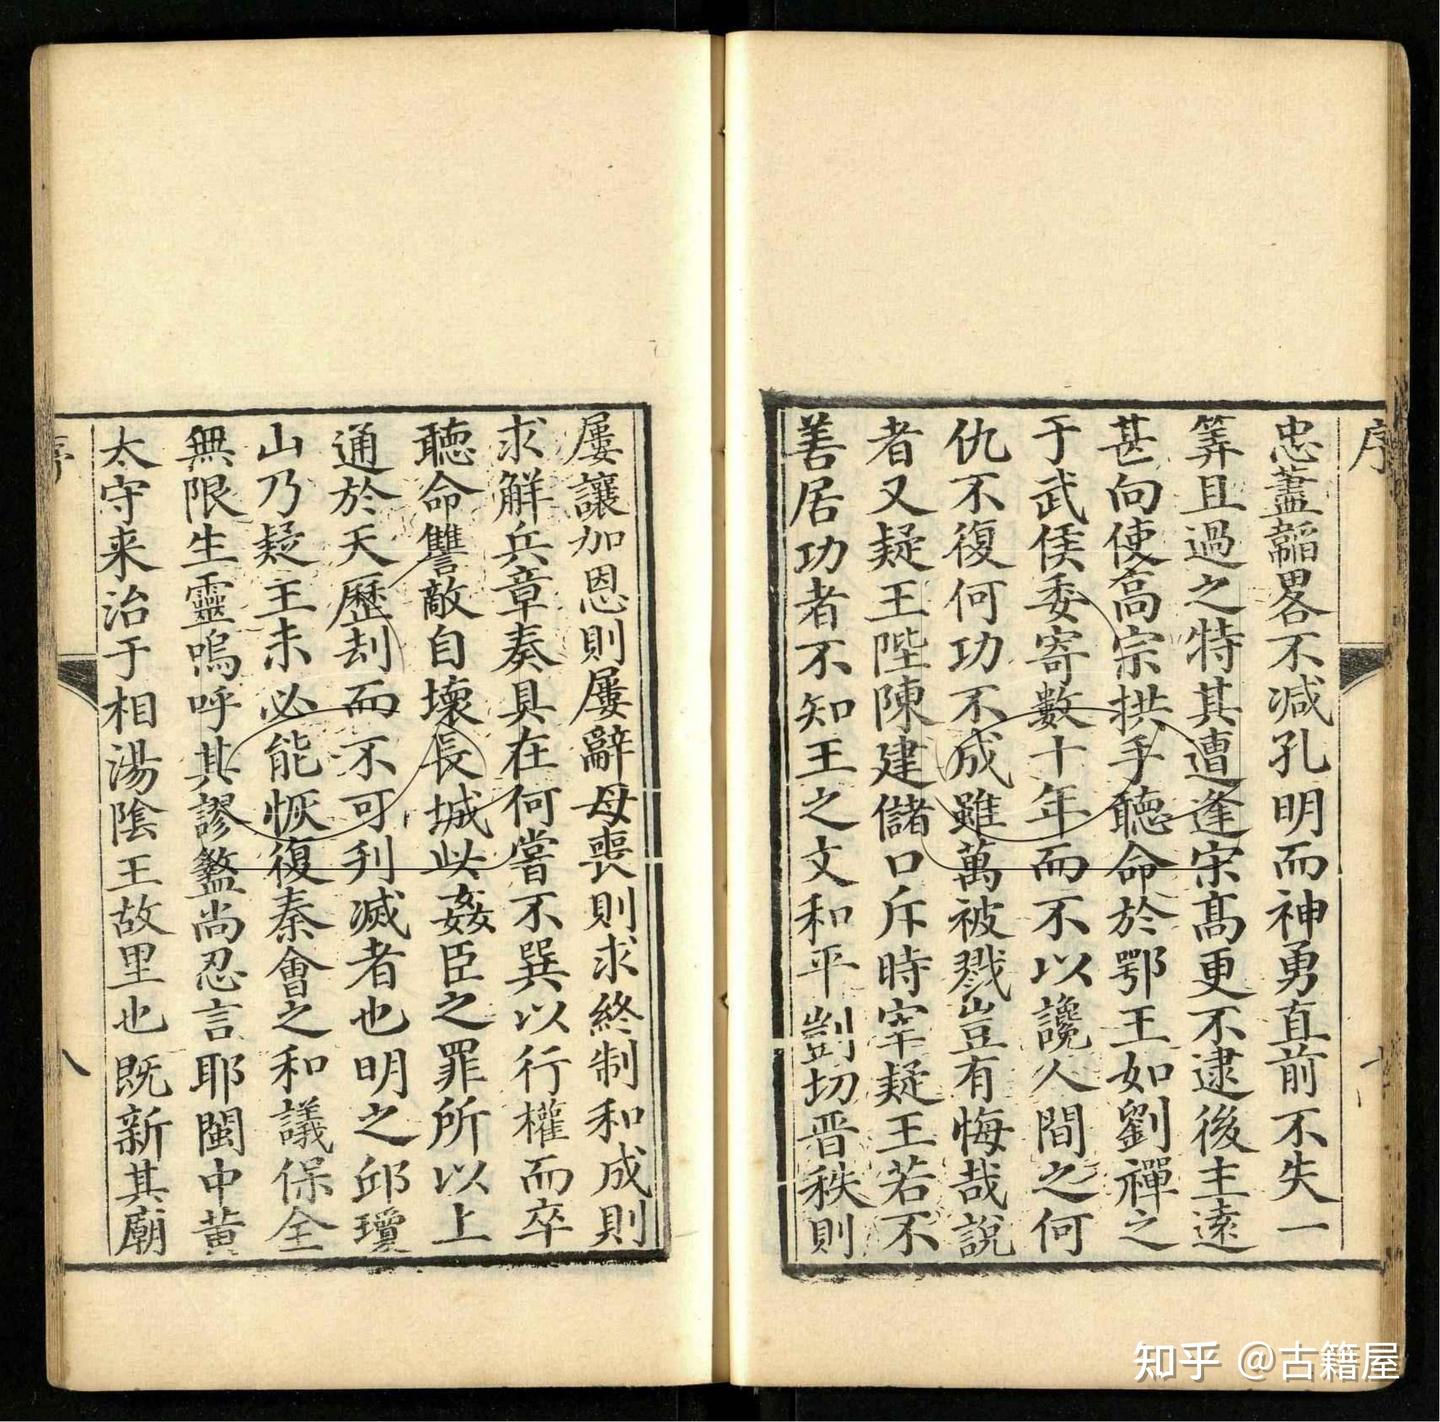 序
忠藎韜畧不減孔明而神勇直前不失一
筭且過之特其遭逢宋高更不逮後主遠
甚向使高宗拱手聽命於鄂王如劉禪之
于武侯委寄數十年而不以讒人間之何
仇不復何功不成雖萬被戮豈有悔哉說
者又疑王陛陳建儲口斥時宰疑王若不
善居功者不知王之文和平剴切晋秩則
屢讓加恩則屢辭母喪則求終制和成則
求解兵章奏具在何嘗不巽以行權而卒
聽命讐敵自壞長城此姦臣之罪所以上
通於天歷刦而不可刋滅者也明之邱瓊
山乃疑王未必能恢復秦會之和議保全
無限生靈嗚呼其謬盭尚忍言耶閩中黃
太守来治于相湯陰王故里也既新其廟
序
八
知乎 @古籍屋